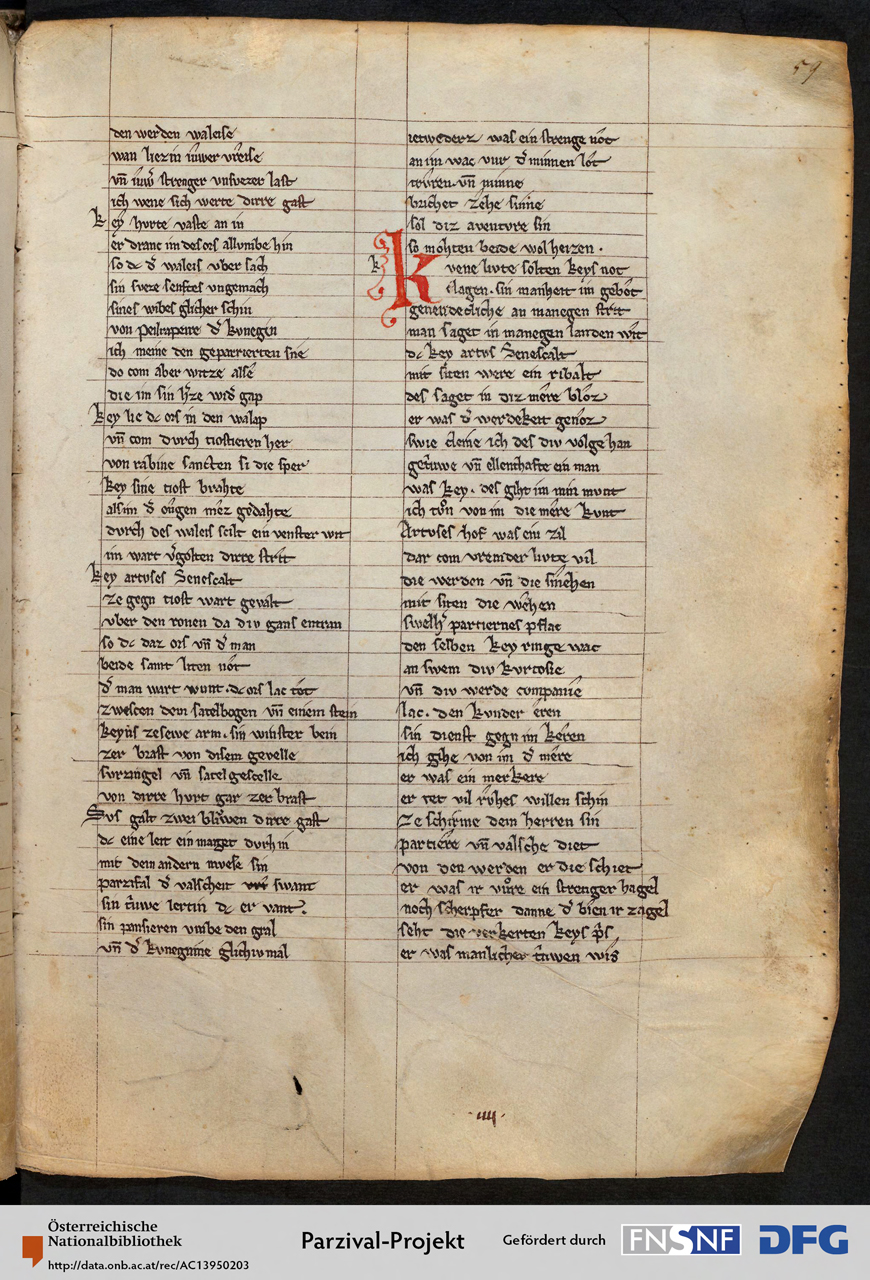 59
den werden waleise
wan liezin iuwer vreise
vn̄ iuwͦ strenger unsuezer last
ich wene sich werte dirre gast
key hurte vaste an in
er dranc im des ors allumbe hin
so dc dͤ waleis vber sach
sin sveze senftes ungemach
sines wibes glicher schin
von peilrapeire dͤ kvnegin
ich meine den geparrierten sne
do com aber witze alse
die im sin hͤze widͤ gap
key lie dc ors in den walap
vn̄ com durch tiostieren her
von rabine sancten si die sper
key sine tiost brahte
alsim dͤ ougen mez gedahte
durch des waleis scilt ein venster wit
im wart vͤgolten dirre strit
key artuses Senescalt
ze gegn tiost wart gevalt
vber den ronen da div gans entran
so dc daz ors vn̄ dͤ man
beide samt liten not
dͤ man wart wunt. dc ors lac tot
zwescen dem satelbogen vn̄ einem stein
keyns zesewe arm. sin winster bein
zer brast von disem gevelle
surzingel vn̄ satel gestelle
von dirre hurt gar zer brast
Svs galt zwei bluwen dirre gast
dc eine leit ein maget durh in
mit dem andern mvese sin
parzifal dͤ valscheit swant
sin truwe lertin dc er vant.
sin pansieren vmbe den gral
vn̄ dͤ kvneginne glichiv mal
ietwederz was ein strenge not
an im wac vur dͤ minnen lot
truren. vn̄ minne
brichet zehe sinne
sol diz aventvre sin
so mohten beide wol heizen.
k
Kvene livte solten keys not
clagen. sin manheit im gebot
genendecliche an manegen strit
man saget in manegen landen wit
dc key artvs Senescalt
mit siten were ein ribalt
des saget in diz mere bloz
er was dͤ werdekeit genoz
swie cleine ich des div volge han
getruwe vn̄ ellenthafte ein man
was key. des giht im min munt
ich tuon von im die mere kunt
Artuses hof was ein zil
dar com vremder livte vil
die werden vn̄ die smehen
mit siten die wehen
swelhͤ partiernes pflac
den selben key ringe wac
an swem div kvrtosie
vn̄ div werde companie
lac. den kvnder eren
sin dienst gegn im keren
ich gihe von im dͤ mere
er was ein merkere
er tet vil ruhes willen schin
ze schirme dem herren sin
partiere vn̄ valsche diet
von den werden er die schiet
er was ir vuore ein strenger hagel
noch scherpfer danne dͤ bien ir zagel
seht die verkerten keys pͤs
er was manlicher truwen wis
IIII.
Österreichische
Nationalbibliothek
http://data.onb.ac.at/rec/AC13950203
Parzival-Projekt
Gefördert durch
FNSNF
DFG